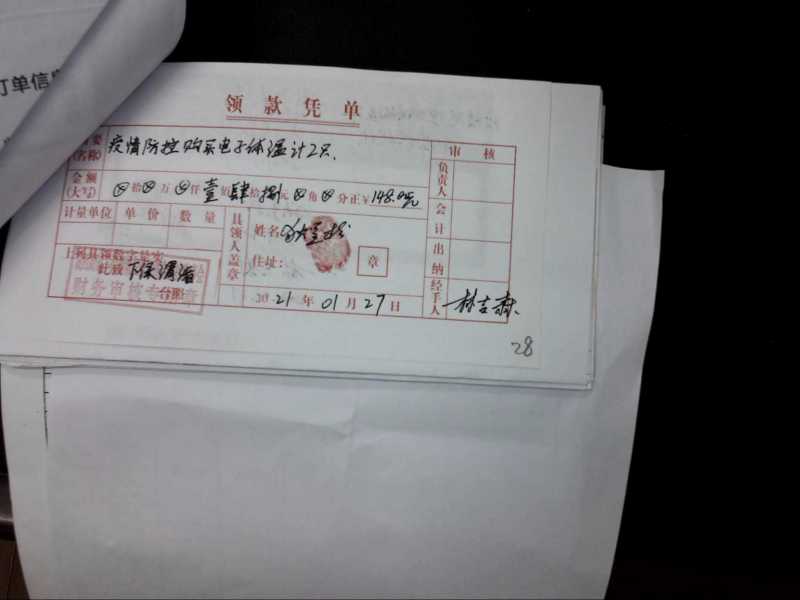 订单信息
领款凭单
摘要(名称) 疫情防控购买电子体温计2只.
审核
金额(大写) ⊗拾⊗万⊗仟壹佰肆拾捌元⊗角⊗分正¥148.0元
负责人
计量单位 单价 数量
具领人盖章
姓名
会计
住址: 章
出纳
上列具领数字量发
此致 下保 台照
财务审核专
2021年01月27日
经手人 林吉
28